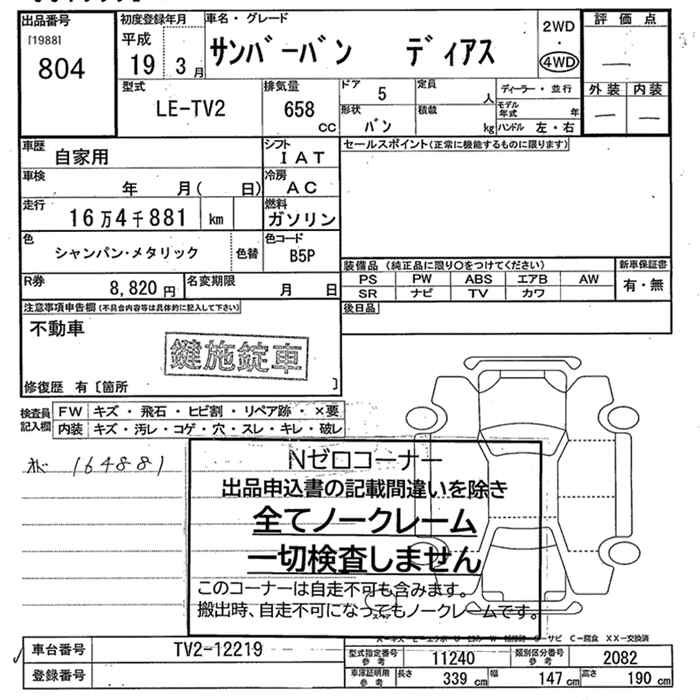 出品番号 初度登録年月 車名・グレード 評価点
[1988] 平成 2WD
804 19 3月 サンバーバン ディアス 4WD —
型式 排気量 ドア 5 定員 人 ディーラー・並行 外装 内装
LE-TV2 658 cc 形状 バン 積載 kg モデル年式 年 — —
ハンドル 左・右
車歴 自家用 シフト IAT セールスポイント(正常に機能するものに限ります)
車検 年 月( 日) 冷房 AC
走行 16万4千881 km 燃料 ガソリン
色 シャンパン・メタリック 色替 色コード B5P
装備品(純正品に限り○をつけてください) 新車保証書
R券 8,820円 名変期限 月 日 PS PW ABS エアB AW 有・無
SR ナビ TV カワ
注意事項申告欄(不具合内容等は具体的に記入して下さい) 後日品
不動車
鍵施錠車
修復歴 有〔箇所 〕
検査員記入欄 FW キズ・飛石・ヒビ割・リペア跡・×要
内装 キズ・汚レ・コゲ・穴・スレ・キレ・破レ
164881
Nゼロコーナー
出品申込書の記載間違いを除き
全てノークレーム
一切検査しません
このコーナーは自走不可も含みます。
搬出時、自走不可になってもノークレームです。
サビ C−腐食 XX−交換済
車台番号 TV2-12219 型式指定番号参考 11240 類別区分番号参考 2082
登録番号 車庫証明用参考 長さ 339 cm 幅 147 cm 高さ 190 cm